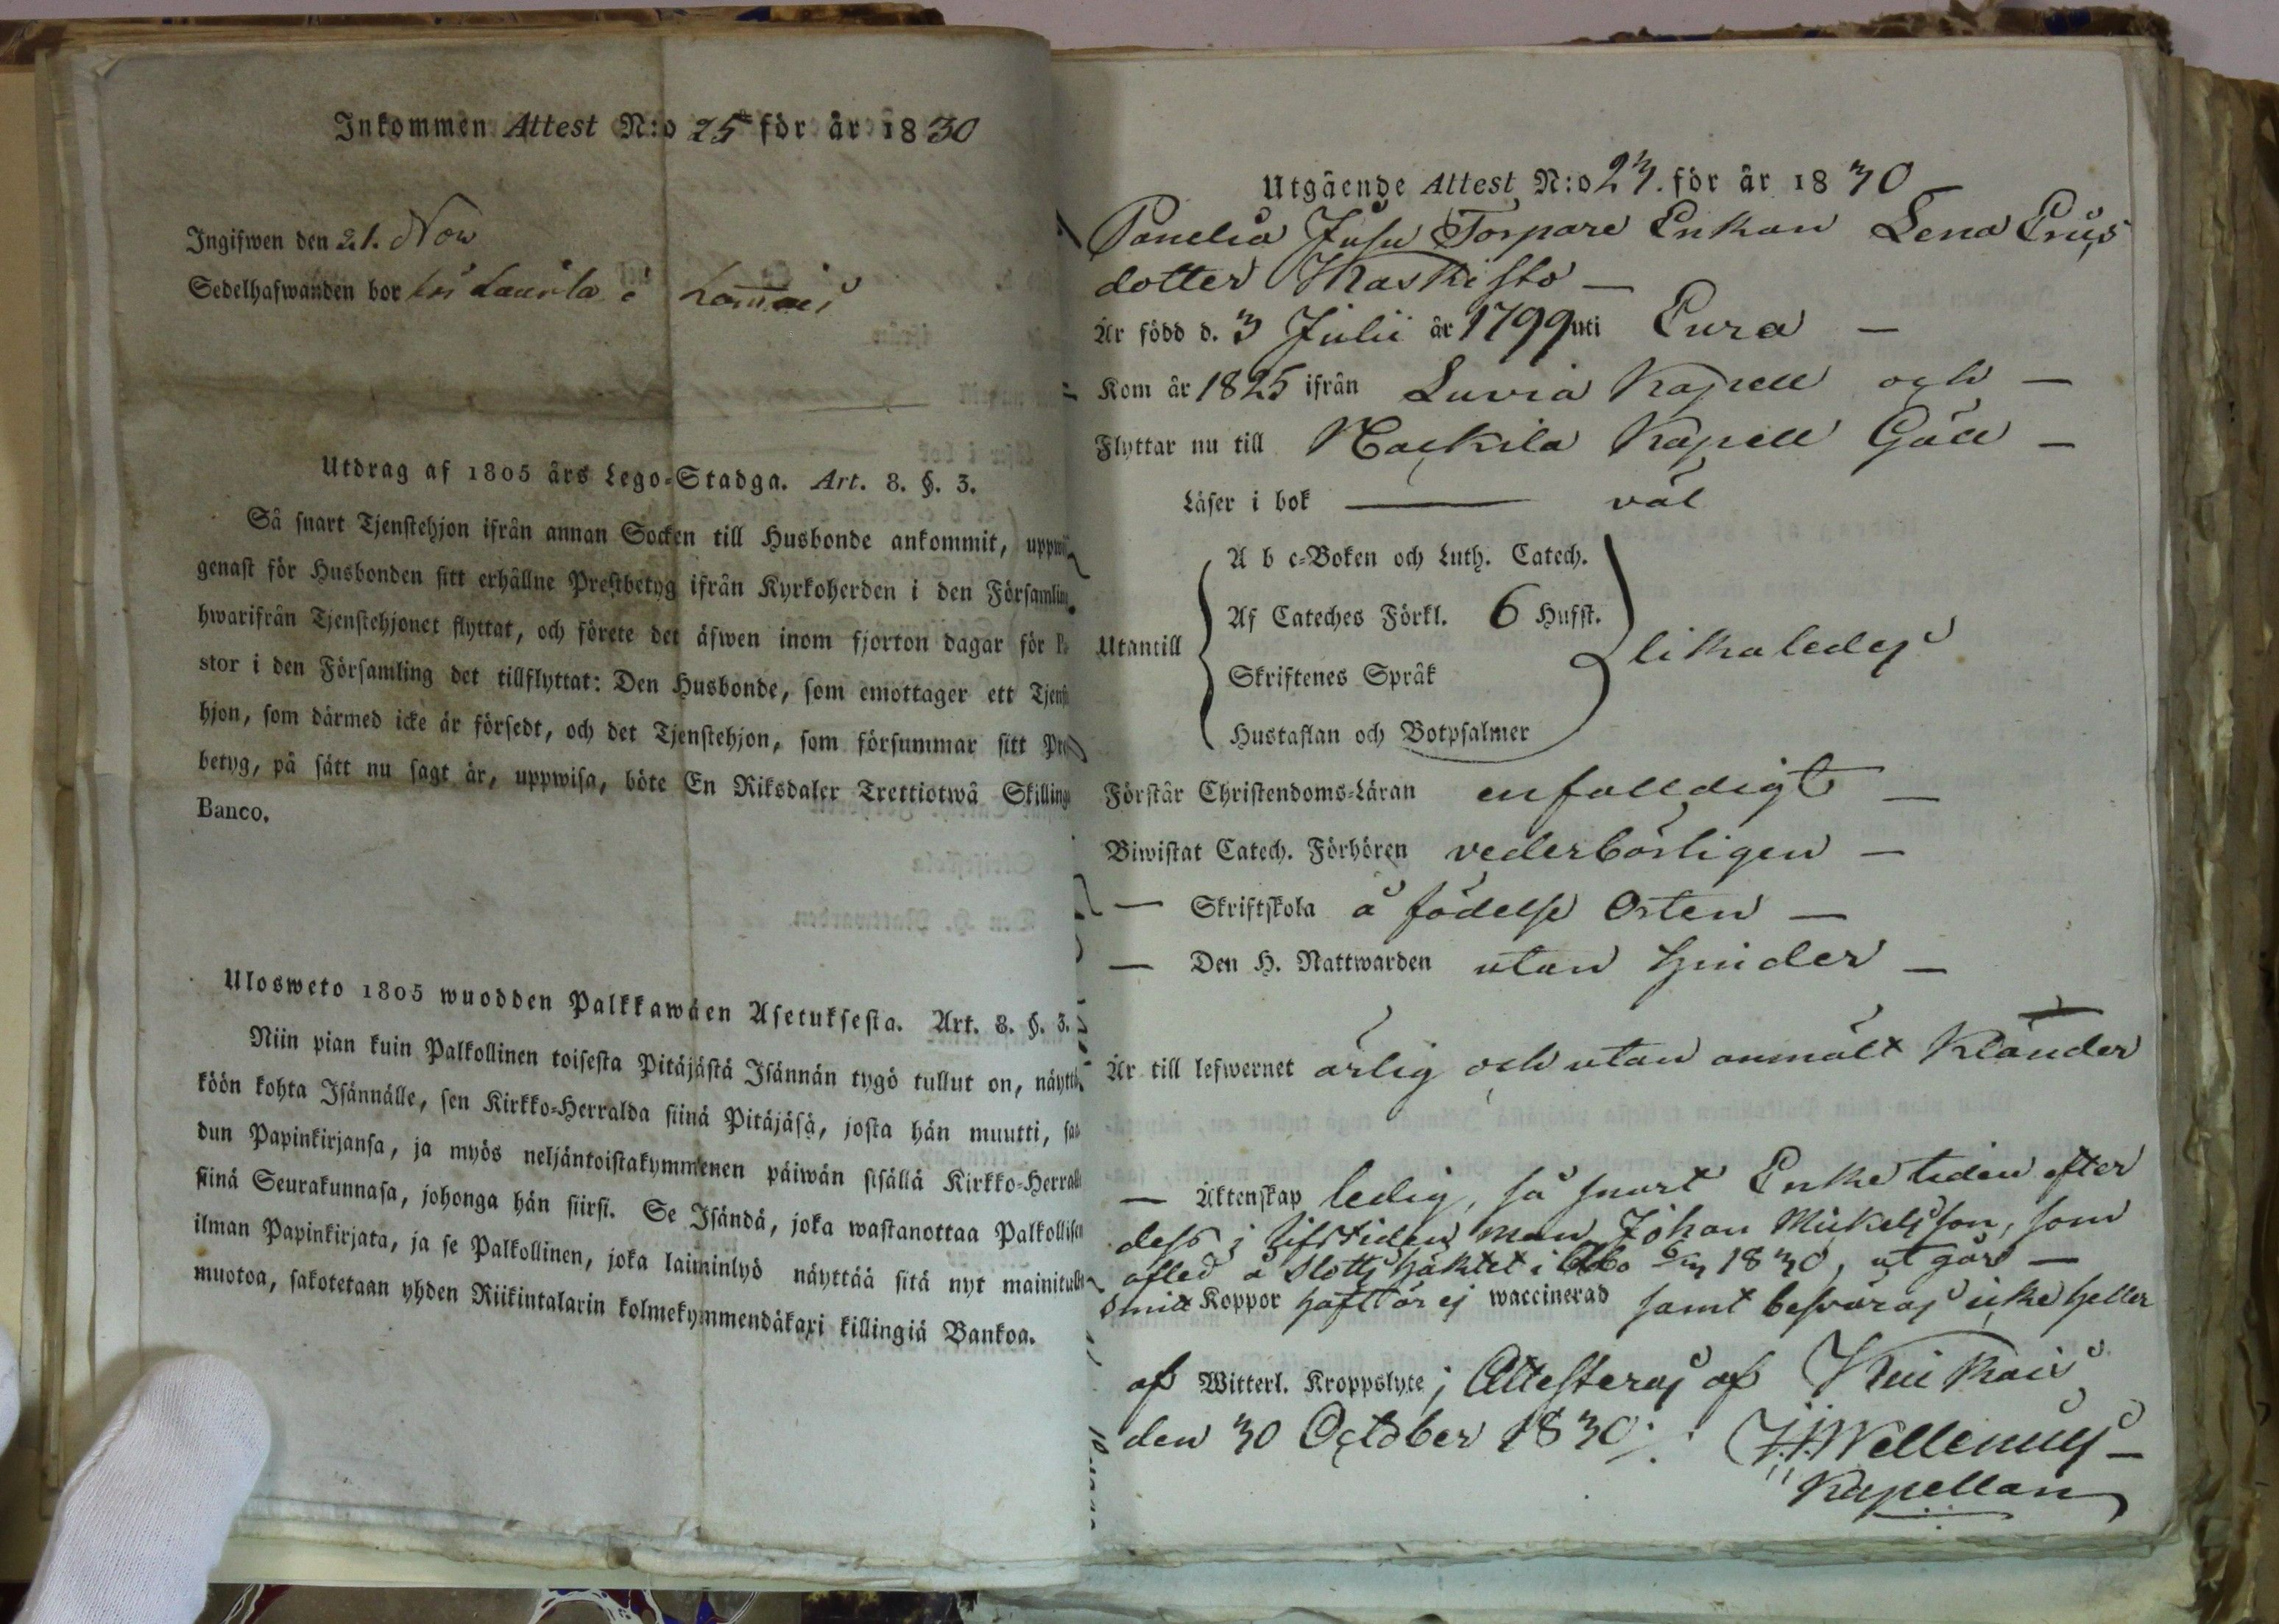 Inkommen Attest N:o 25 för år 1830
Ingifwen den 21. Nov
Sedelhafwanden bor hos Laurla i
Utdrag af 1805 års Lego-Stadga. Art. 8. §. 3.
Så snart Tjenstehjon ifrån annan Socken till Husbonde ankommit, uppwi
genast för Husbonden sitt erhållne Prestbetyg ifrån Kyrkoherden i den Församlin
hwarifrån Tjenstehjonet flyttat, och förete det äfwen inom fjorton dagar för Pa
stor i den Församling det tillflyttat: Den Husbonde, som emottager ett Tjenst
hjon, som därmed icke är försedt, och det Tjenstehjon, som försummar sitt Pre
betyg, på sätt nu sagt är, uppwisa, böte En Riksdaler Trettiotwå Skilling
Banco.
Ulosweto 1805 wuodden Palkkawäen Asetuksesta. Art. 8. §. 3.
Niin pian kuin Palkollinen toisesta Pitäjästä Isännän tygö tullut on, näyttä
köön kohta Isännälle, sen Kirkko-Herralda siinä Pitäjäsä, josta hän muutti, saa
dun Papinkirjansa, ja myös neljäntoistakymmenen päiwän sisällä Kirkko-Herralle
siinä Seurakunnasa, johonga hän siirsi. Se Isändä, joka wastanottaa Palkollisen
ilman Papinkirjata, ja se Palkollinen, joka laiminlyö näyttää sitä nyt mainitulla
muotoa, sakotetaan yhden Riikintalarin kolmekymmendäkaxi killingiä Bankoa.
Utgående Attest N:o 23. för år 1830
Panelia Jusu Torpare Enkan Lena Ers
dotter Kaskisto —
Är född d. 3 Julii år 1799 uti Eura —
Kom år 1825 ifrån Luvia Kapell och —
Flyttar nu till Nackila Kapell Gäll —
Läser i bok — väl
Utantill
A b c-Boken och Luth. Catech.
Af Cateches Förkl. 6 Hufst.
Skriftenes Språk
likaledes
Hustaflan och Botpsalmer
Förstår Christendoms-Läran enfalldigt —
Biwistat Catech. Förhören vederbörligen —
— Skriftskola å födelse Orten —
— Den H. Nattwarden utan hinder —
Är till lefwernet ärlig och utan anmält Klander
— Äktenskap ledig, så snart Enke tiden efter
dess i lifstiden man Johan Mickelsson, som
afled å Slotts häktet i Åbo 1830, utgår —
Koppor haft är ej waccinerad samt besväras icke heller
af Witterl. Kroppslyte; Attesteras af Kiukais
den 30 October 1830. Wellenius —
Kapellan